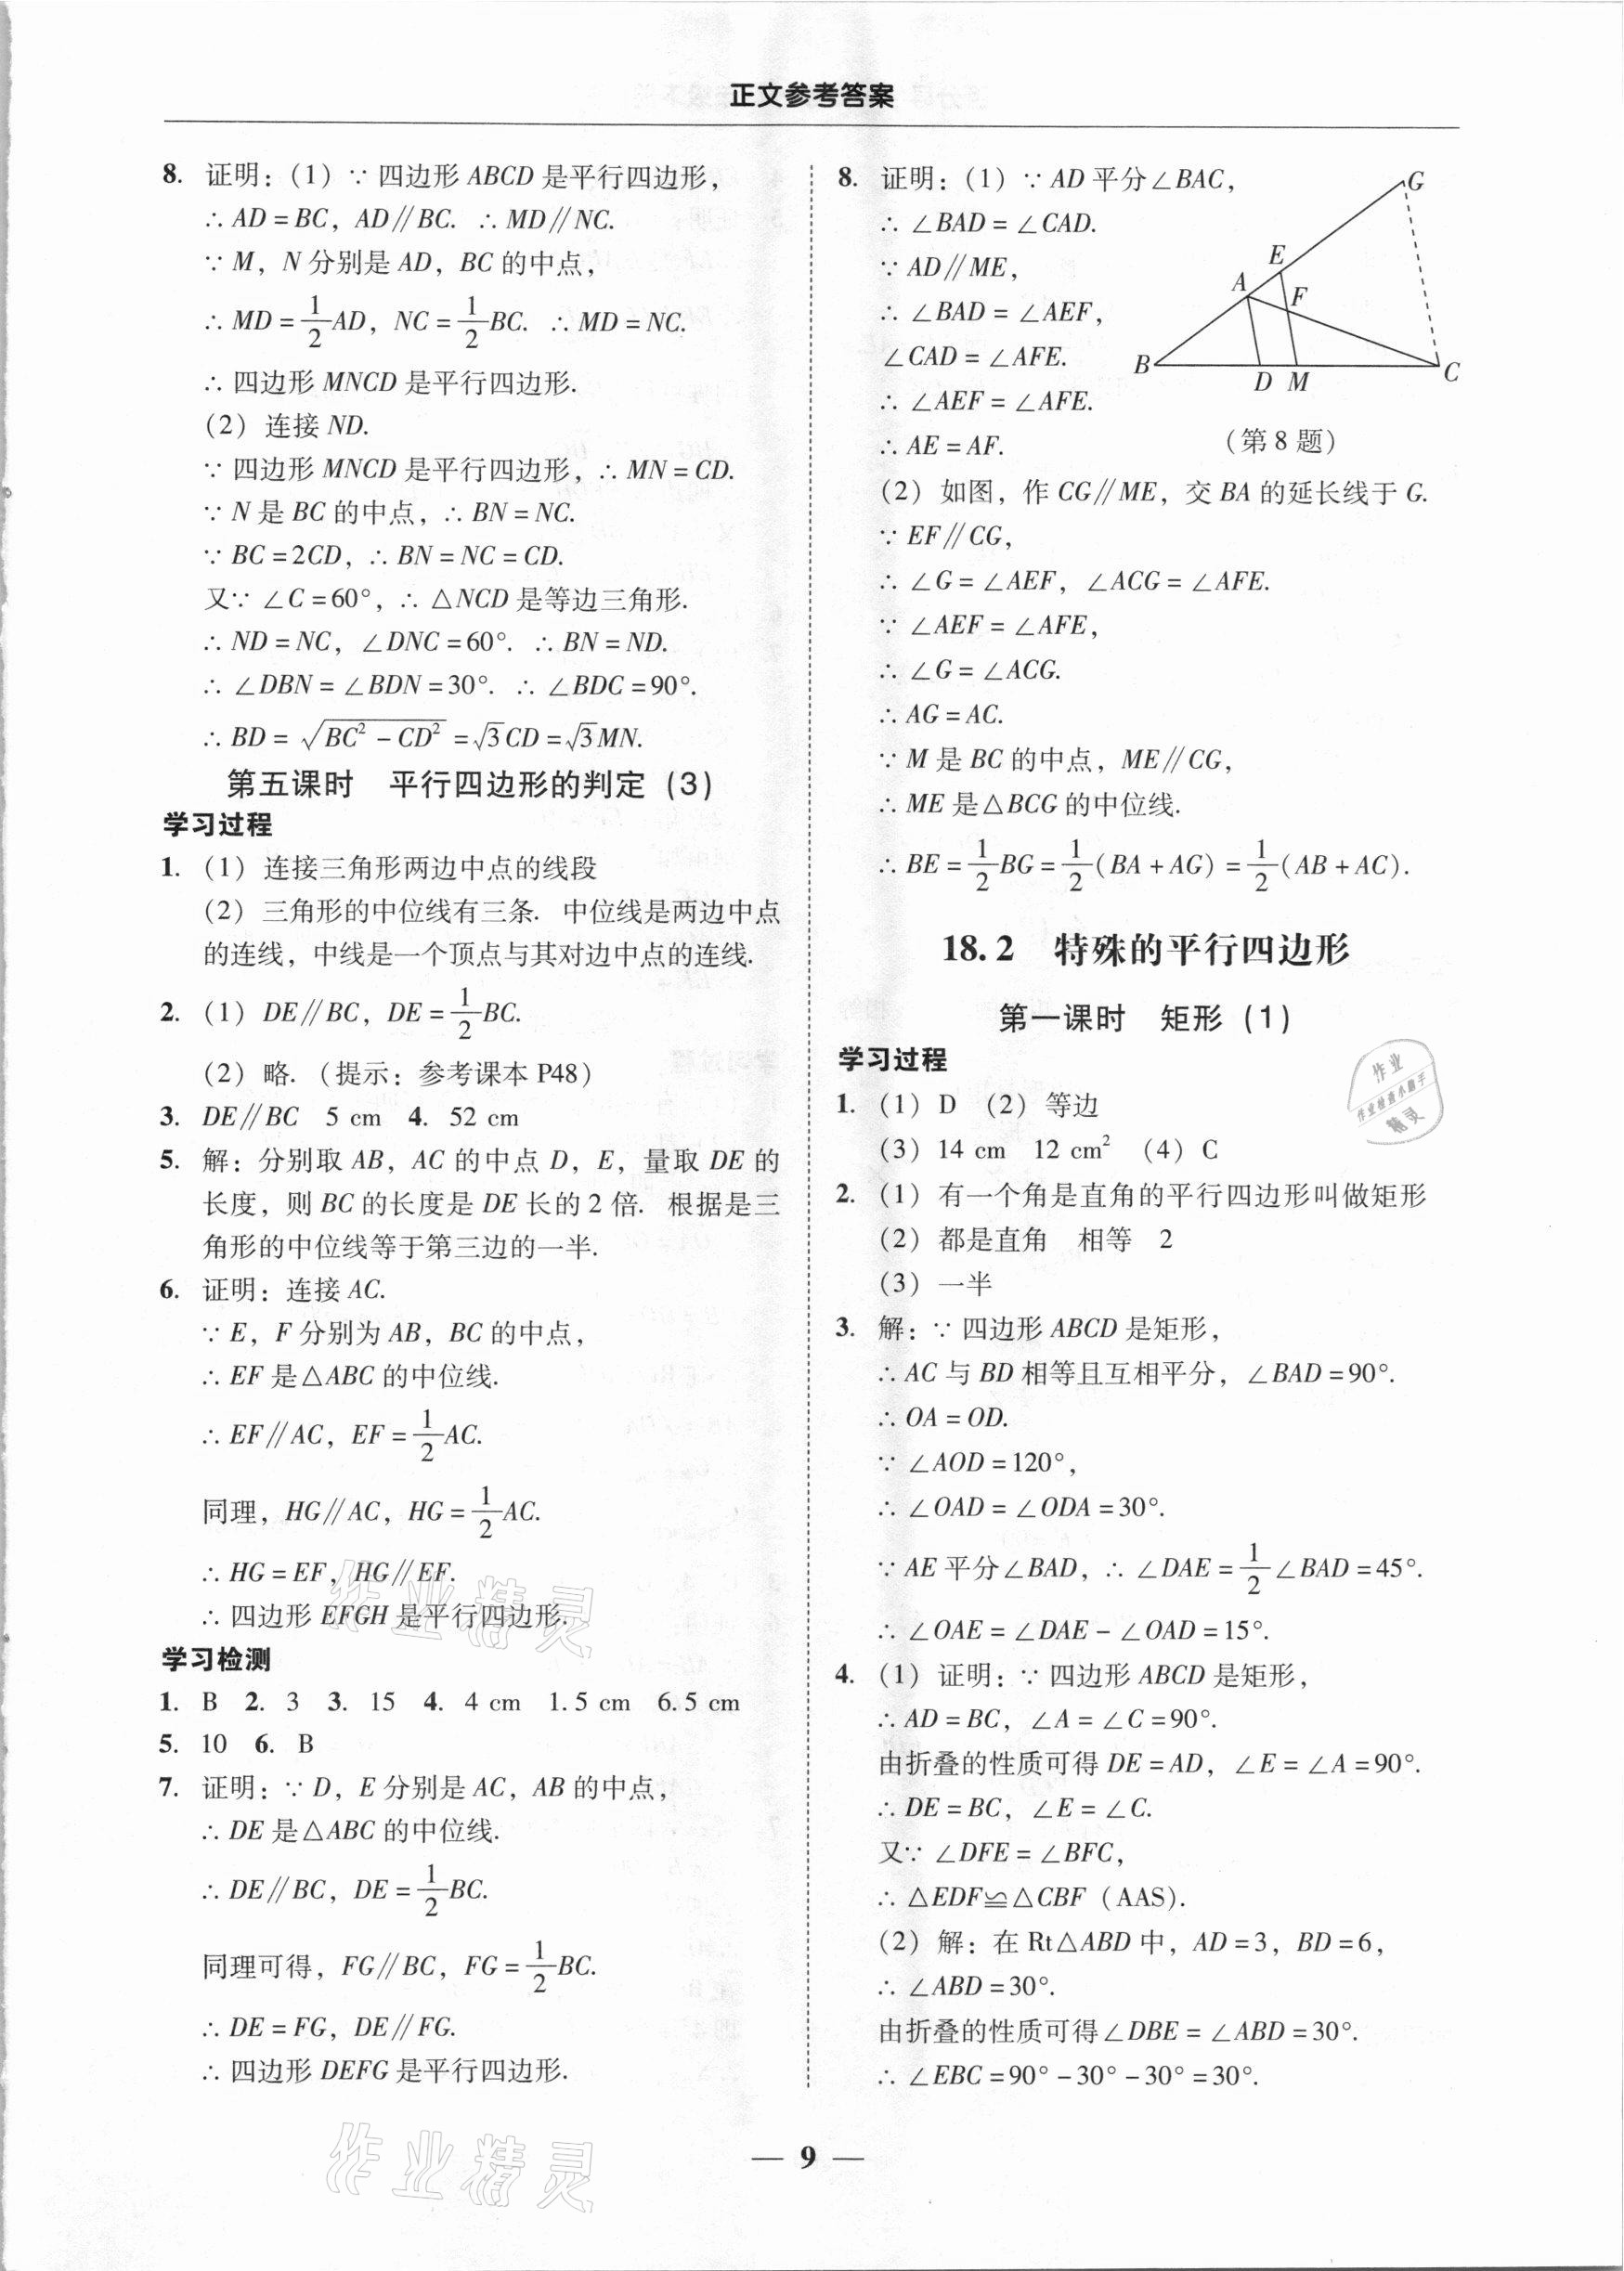 正文参考答案
8. 证明：(1) ∵ 四边形 ABCD 是平行四边形，
∴ AD = BC，AD∥BC. ∴ MD∥NC.
∵ M，N 分别是 AD，BC 的中点，
∴ MD = 1/2 AD，NC = 1/2 BC. ∴ MD = NC.
∴ 四边形 MNCD 是平行四边形.
(2) 连接 ND.
∵ 四边形 MNCD 是平行四边形，∴ MN = CD.
∵ N 是 BC 的中点，∴ BN = NC.
∵ BC = 2CD，∴ BN = NC = CD.
又∵ ∠C = 60°，∴ △NCD 是等边三角形.
∴ ND = NC，∠DNC = 60°. ∴ BN = ND.
∴ ∠DBN = ∠BDN = 30°. ∴ ∠BDC = 90°.
∴ BD = √(BC² − CD²) = √3 CD = √3 MN.
第五课时 平行四边形的判定 (3)
学习过程
1. (1) 连接三角形两边中点的线段
(2) 三角形的中位线有三条. 中位线是两边中点
的连线，中线是一个顶点与其对边中点的连线.
2. (1) DE∥BC，DE = 1/2 BC.
(2) 略. (提示：参考课本 P48)
3. DE∥BC 5 cm 4. 52 cm
5. 解：分别取 AB，AC 的中点 D，E，量取 DE 的
长度，则 BC 的长度是 DE 长的 2 倍. 根据是三
角形的中位线等于第三边的一半.
6. 证明：连接 AC.
∵ E，F 分别为 AB，BC 的中点，
∴ EF 是△ABC 的中位线.
∴ EF∥AC，EF = 1/2 AC.
同理，HG∥AC，HG = 1/2 AC.
∴ HG = EF，HG∥EF.
∴ 四边形 EFGH 是平行四边形.
学习检测
1. B 2. 3 3. 15 4. 4 cm 1.5 cm 6.5 cm
5. 10 6. B
7. 证明：∵ D，E 分别是 AC，AB 的中点，
∴ DE 是△ABC 的中位线.
∴ DE∥BC，DE = 1/2 BC.
同理可得，FG∥BC，FG = 1/2 BC.
∴ DE = FG，DE∥FG.
∴ 四边形 DEFG 是平行四边形.
8. 证明：(1) ∵ AD 平分∠BAC，
∴ ∠BAD = ∠CAD.
∵ AD∥ME，
∴ ∠BAD = ∠AEF，
∠CAD = ∠AFE.
∴ ∠AEF = ∠AFE.
∴ AE = AF.
G
E
A
F
B
D M
C
(第 8 题)
(2) 如图，作 CG∥ME，交 BA 的延长线于 G.
∵ EF∥CG，
∴ ∠G = ∠AEF，∠ACG = ∠AFE.
∵ ∠AEF = ∠AFE，
∴ ∠G = ∠ACG.
∴ AG = AC.
∵ M 是 BC 的中点，ME∥CG，
∴ ME 是△BCG 的中位线.
∴ BE = 1/2 BG = 1/2 (BA + AG) = 1/2 (AB + AC).
18.2 特殊的平行四边形
第一课时 矩形 (1)
学习过程
1. (1) D (2) 等边
(3) 14 cm 12 cm² (4) C
2. (1) 有一个角是直角的平行四边形叫做矩形
(2) 都是直角 相等 2
(3) 一半
3. 解：∵ 四边形 ABCD 是矩形，
∴ AC 与 BD 相等且互相平分，∠BAD = 90°.
∴ OA = OD.
∵ ∠AOD = 120°，
∴ ∠OAD = ∠ODA = 30°.
∵ AE 平分∠BAD，∴ ∠DAE = 1/2 ∠BAD = 45°.
∴ ∠OAE = ∠DAE − ∠OAD = 15°.
4. (1) 证明：∵ 四边形 ABCD 是矩形，
∴ AD = BC，∠A = ∠C = 90°.
由折叠的性质可得 DE = AD，∠E = ∠A = 90°.
∴ DE = BC，∠E = ∠C.
又∵ ∠DFE = ∠BFC，
∴ △EDF≌△CBF (AAS).
(2) 解：在 Rt△ABD 中，AD = 3，BD = 6，
∴ ∠ABD = 30°.
由折叠的性质可得∠DBE = ∠ABD = 30°.
∴ ∠EBC = 90° − 30° − 30° = 30°.
作业
作业检查小助手
精灵
作业精灵
作业精灵
— 9 —